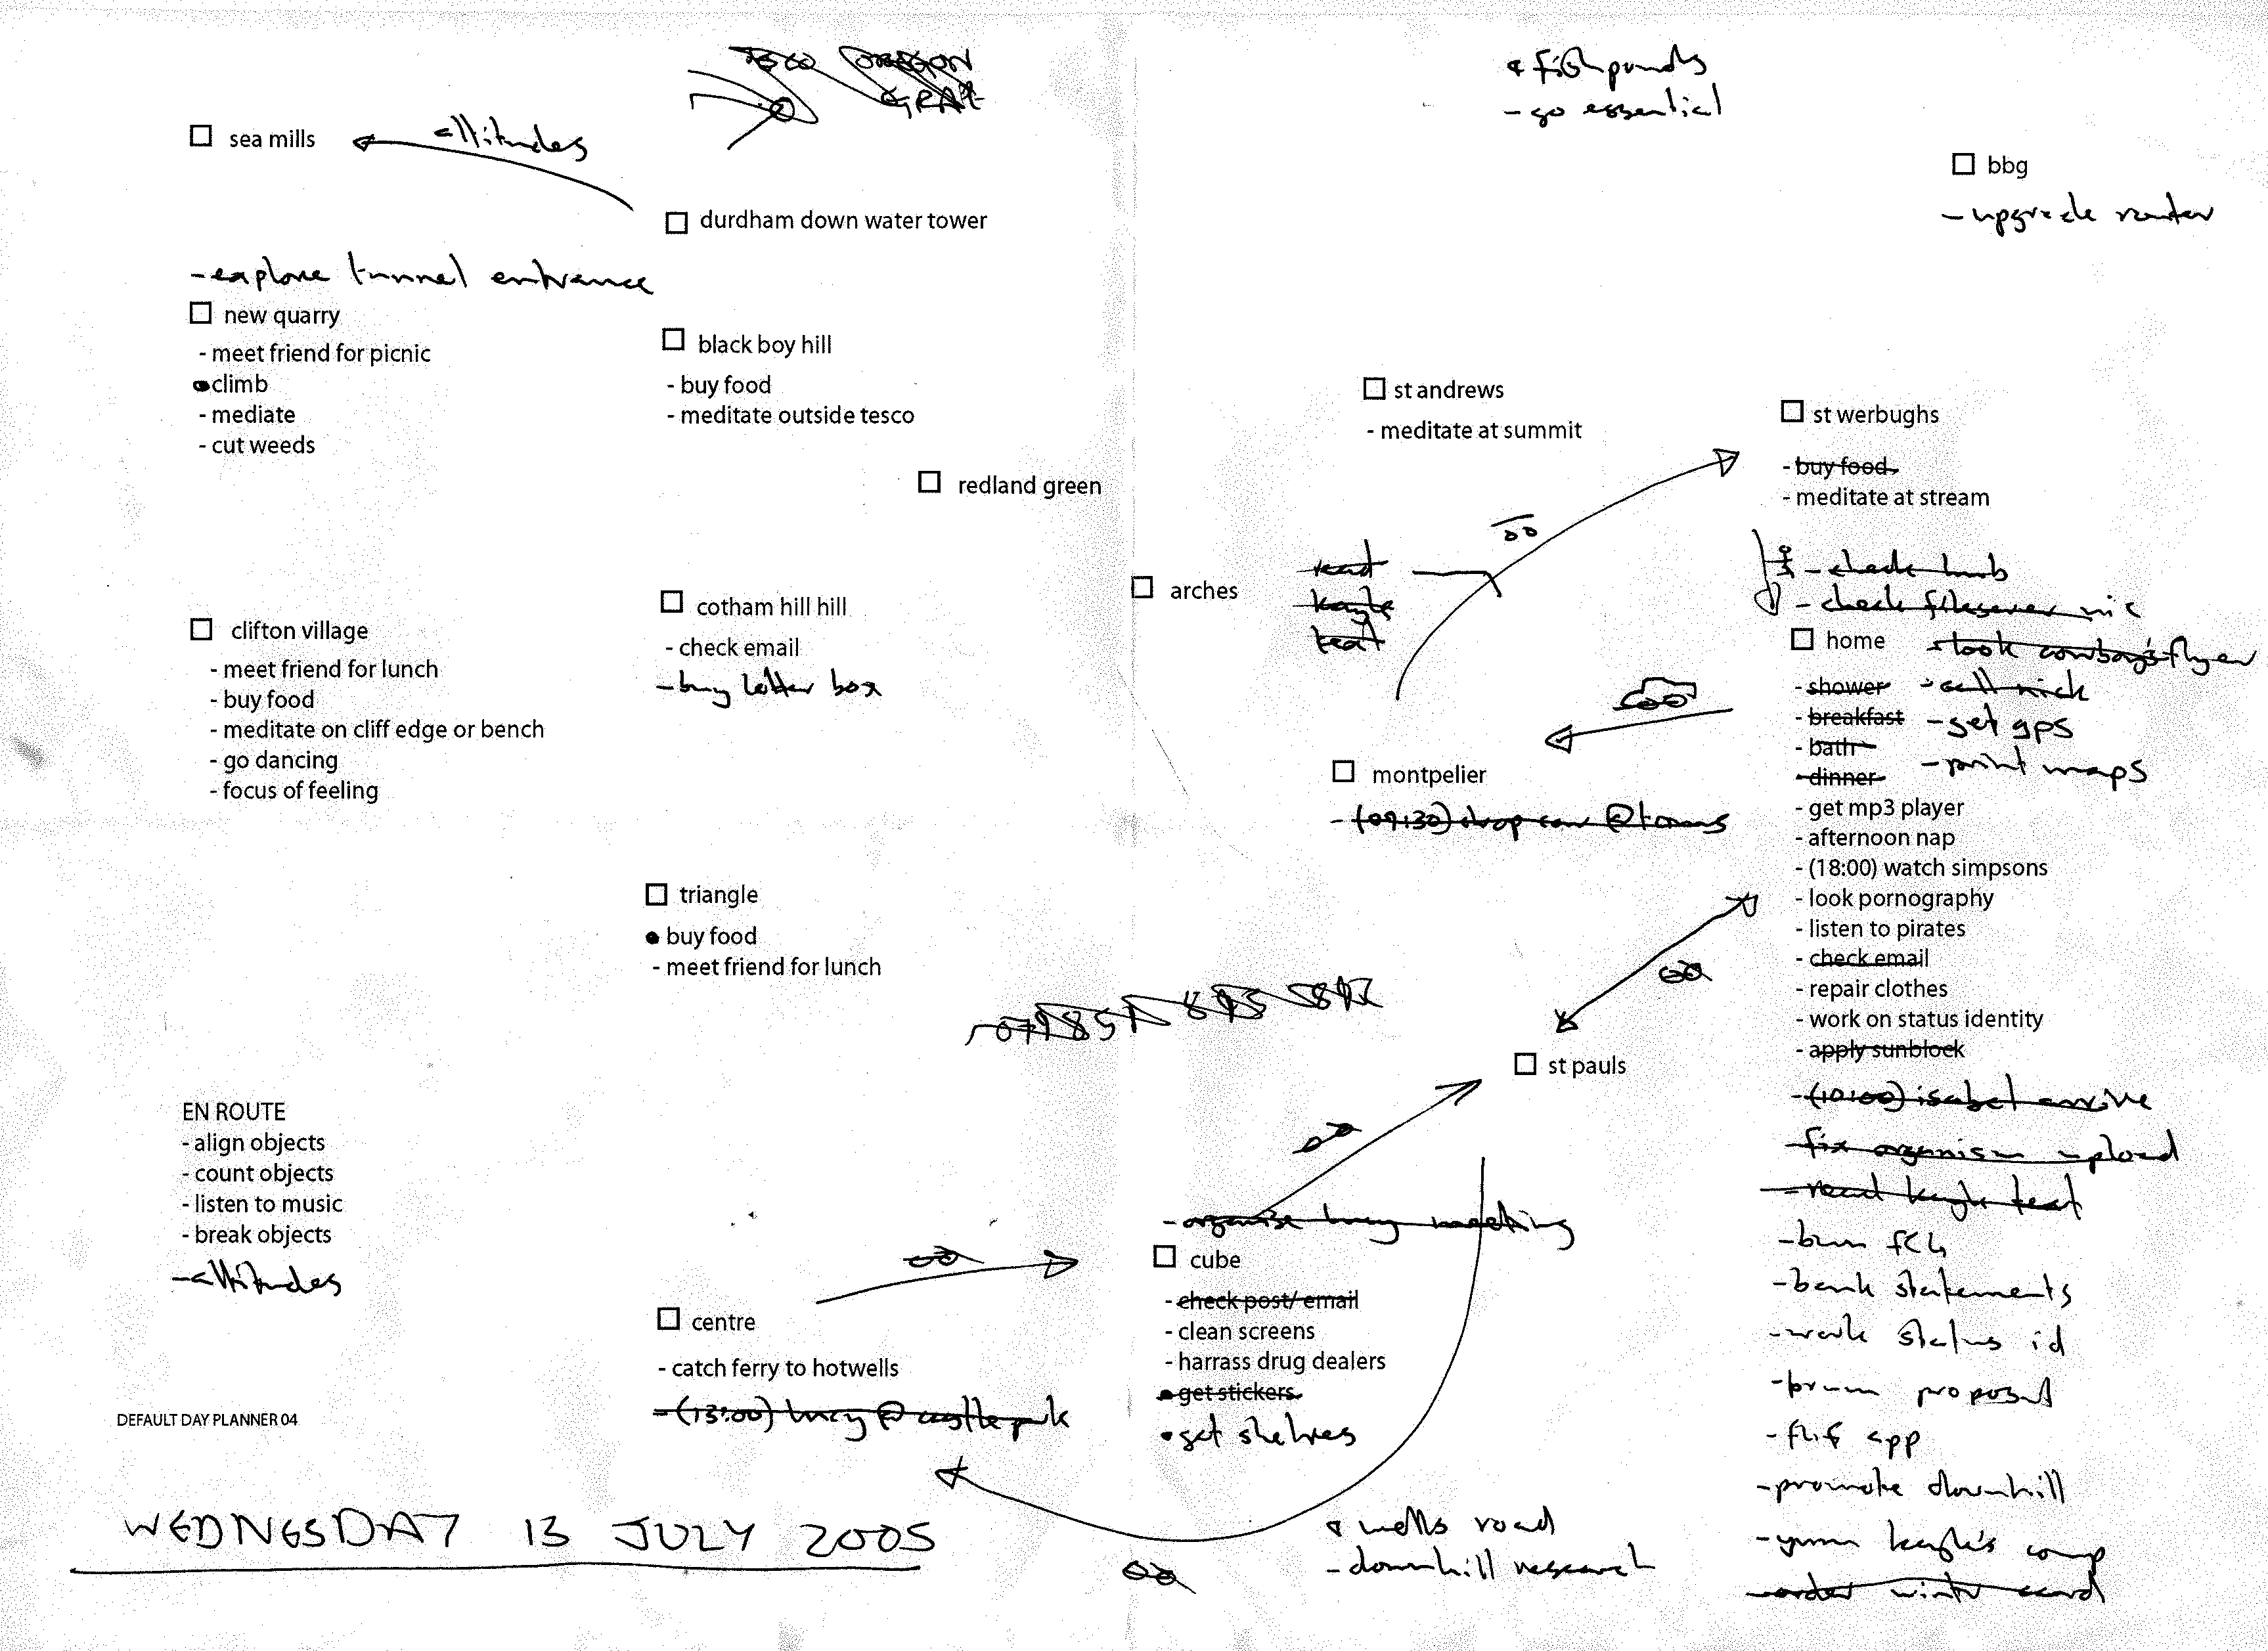 TESCO OREGON
& fishponds
- go essential
sea mills
altitudes
bbg
- upgrade router
durdham down water tower
- explore tunnel entrance
new quarry
- meet friend for picnic
climb
- mediate
- cut weeds
black boy hill
- buy food
- meditate outside tesco
st andrews
- meditate at summit
st werbughs
- buy food
- meditate at stream
redland green
arches
read
kayle
text
- check
- check fileserver nic
clifton village
- meet friend for lunch
- buy food
- meditate on cliff edge or bench
- go dancing
- focus of feeling
cotham hill hill
- check email
- buy letter box
home
- shower
- breakfast
- bath
- dinner
- get mp3 player
- afternoon nap
- (18:00) watch simpsons
- look pornography
- listen to pirates
- check email
- repair clothes
- work on status identity
- apply sunblock
- look cowboys flyer
- call nick
- get gps
- print maps
- (10:00) isabel arrive
- fix organism upload
- read kayle text
- bank statements
- work status id
- proposal
- app
- promote downhill
- comp
- order card
montpelier
- (09:30) drop car @ toms
triangle
buy food
- meet friend for lunch
st pauls
EN ROUTE
- align objects
- count objects
- listen to music
- break objects
- altitudes
- organise lucy meeting
cube
- check post/ email
- clean screens
- harrass drug dealers
get stickers
get shelves
centre
- catch ferry to hotwells
- (13:00) lucy @ castle park
DEFAULT DAY PLANNER 04
WEDNESDAY 13 JULY 2005
& wells road
- downhill research